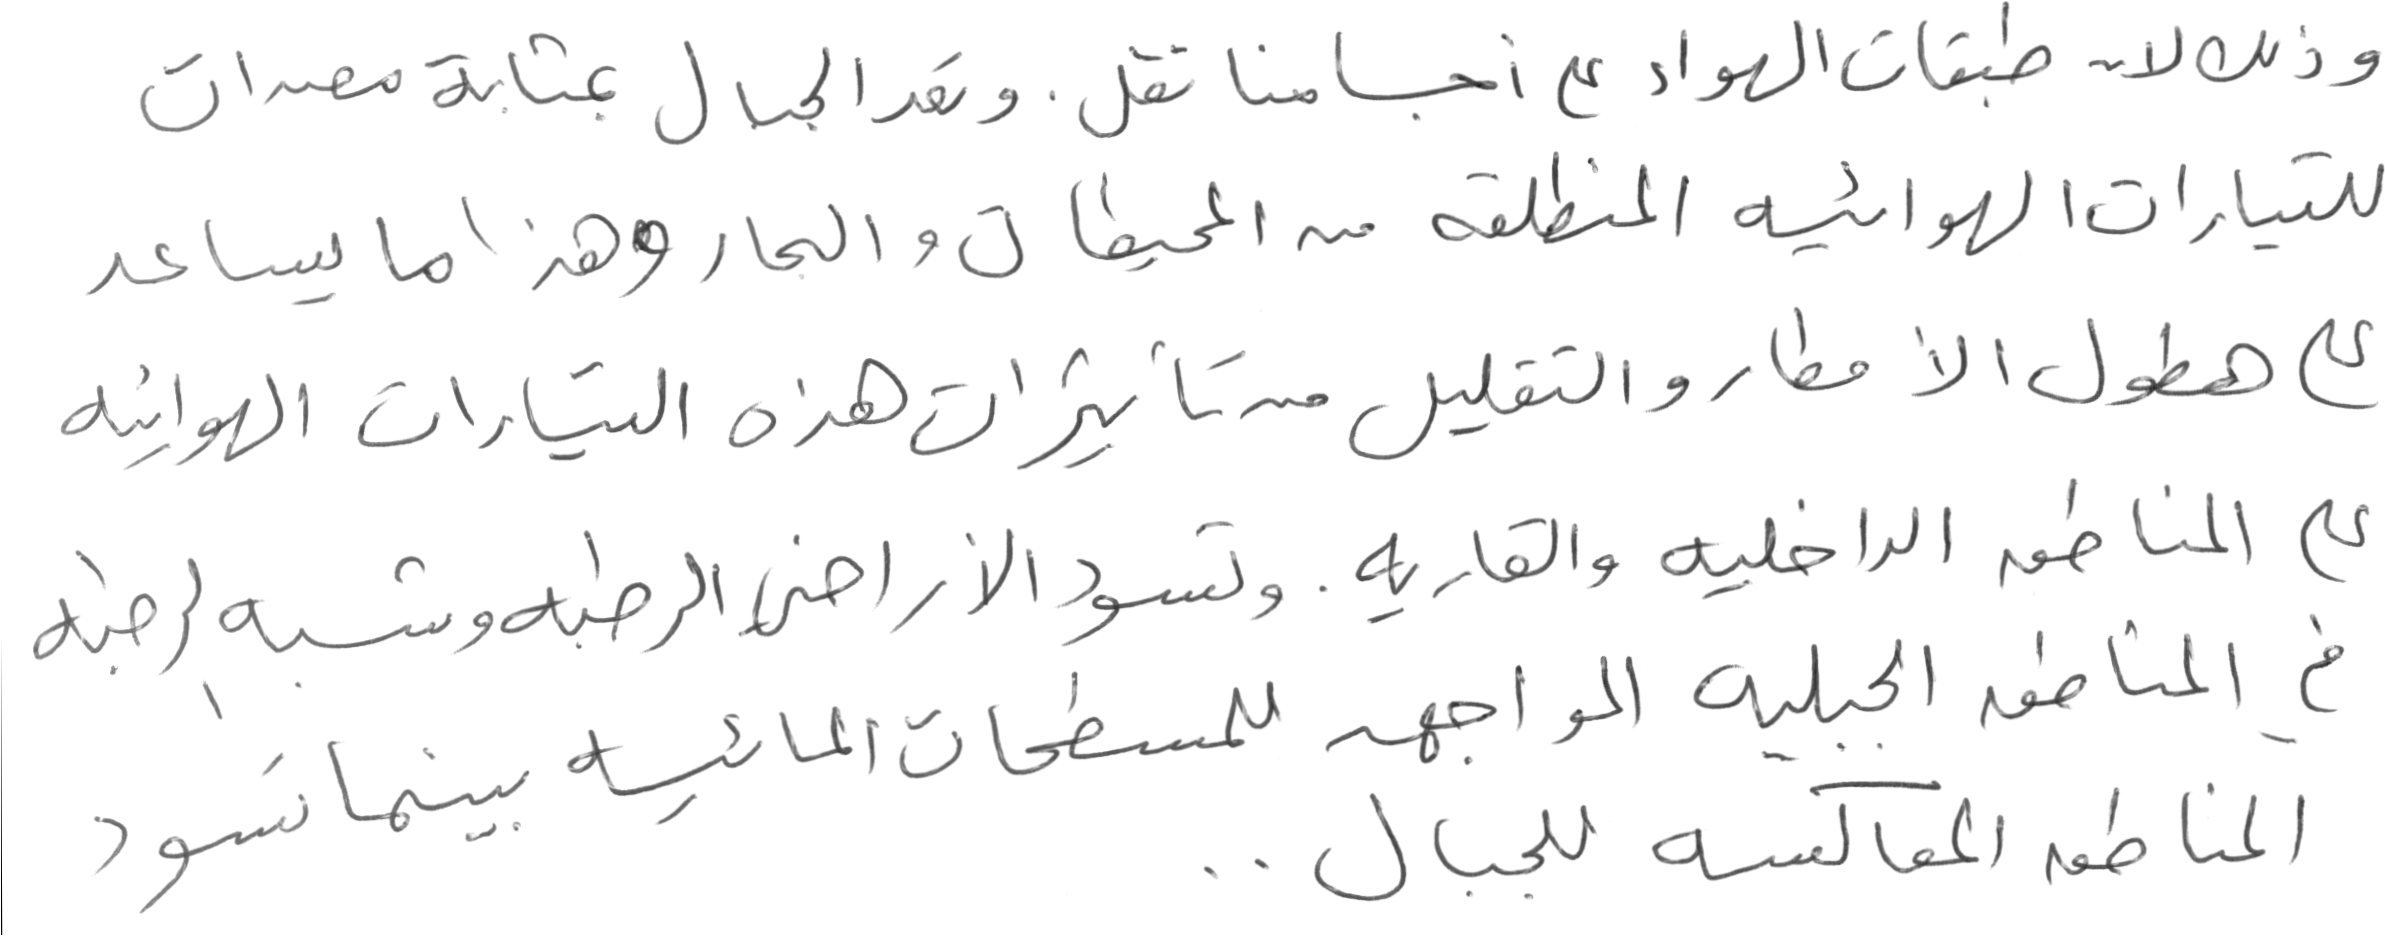 وذلك لان طبقات الهواء على أجسامنا تقل. وتعد الجبال بمثابة مصدات
للتيارات الهوائيه المنطلقة من المحيطات والبحار وهذا ما يساعد
على هطول الأمطار والتقليل من تأثيرات هذه التيارات الهوائيه
على المناطق الداخليه والقاريه. وتسود الأراضي الرطبه وشبه الرطبه
في المناطق الجبليه المواجهه للمسطحات المائيه بينما تسود
المناطق المعاكسه للجبال..